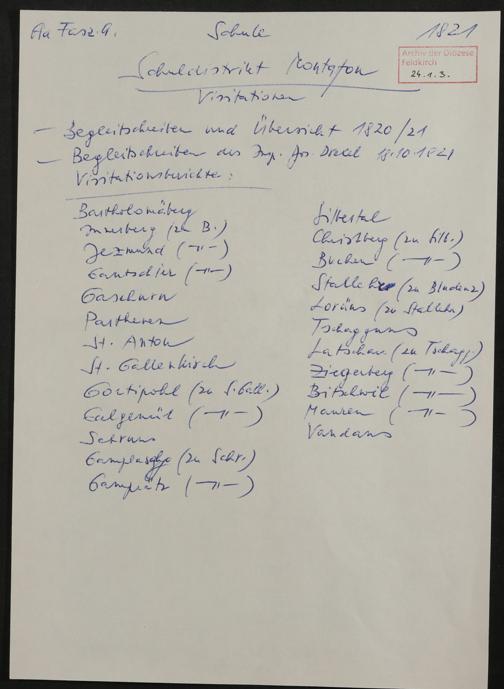 Au Fasz. 4.
Schule
1821
Archiv der Diözese
Feldkirch
24.1.3.
Schuldistrikt Montafon
Visitationen
— Begleitschreiben und Übersicht 1820/21
— Begleitschreiben des Insp. Jos. 18.10.1821
Visitationsberichte:
Bartholomäberg
Innerberg (zu B.)
Jezmund (-"-)
Gantschier (-"-)
Gaschurn
Parthenen
St. Anton
St. Gallenkirch
Gortipohl (zu S. Gall.)
Galgenül (-"-)
Schruns
Gamplaschg (zu Schr.)
Gamprätz (-"-)
Silbertal
Christberg (zu Silb.)
Buchen (-"-)
Stallehr (zu Bludenz)
Lorüns (zu Stallehr)
Tschagguns
Latschau (zu Tschagg.)
Ziegerberg (-"-)
Bitschweil (-"-)
Mauren (-"-)
Vandans